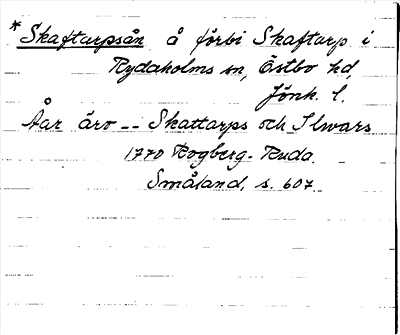 * Skaftarpsån å förbi Skaftarp i
Rydaholms sn, Östbo hd,
Jönk. l.
Åar äro -- Skattarps och Ilwars
1770 Rogberg-Ruda.
Småland, s. 607.